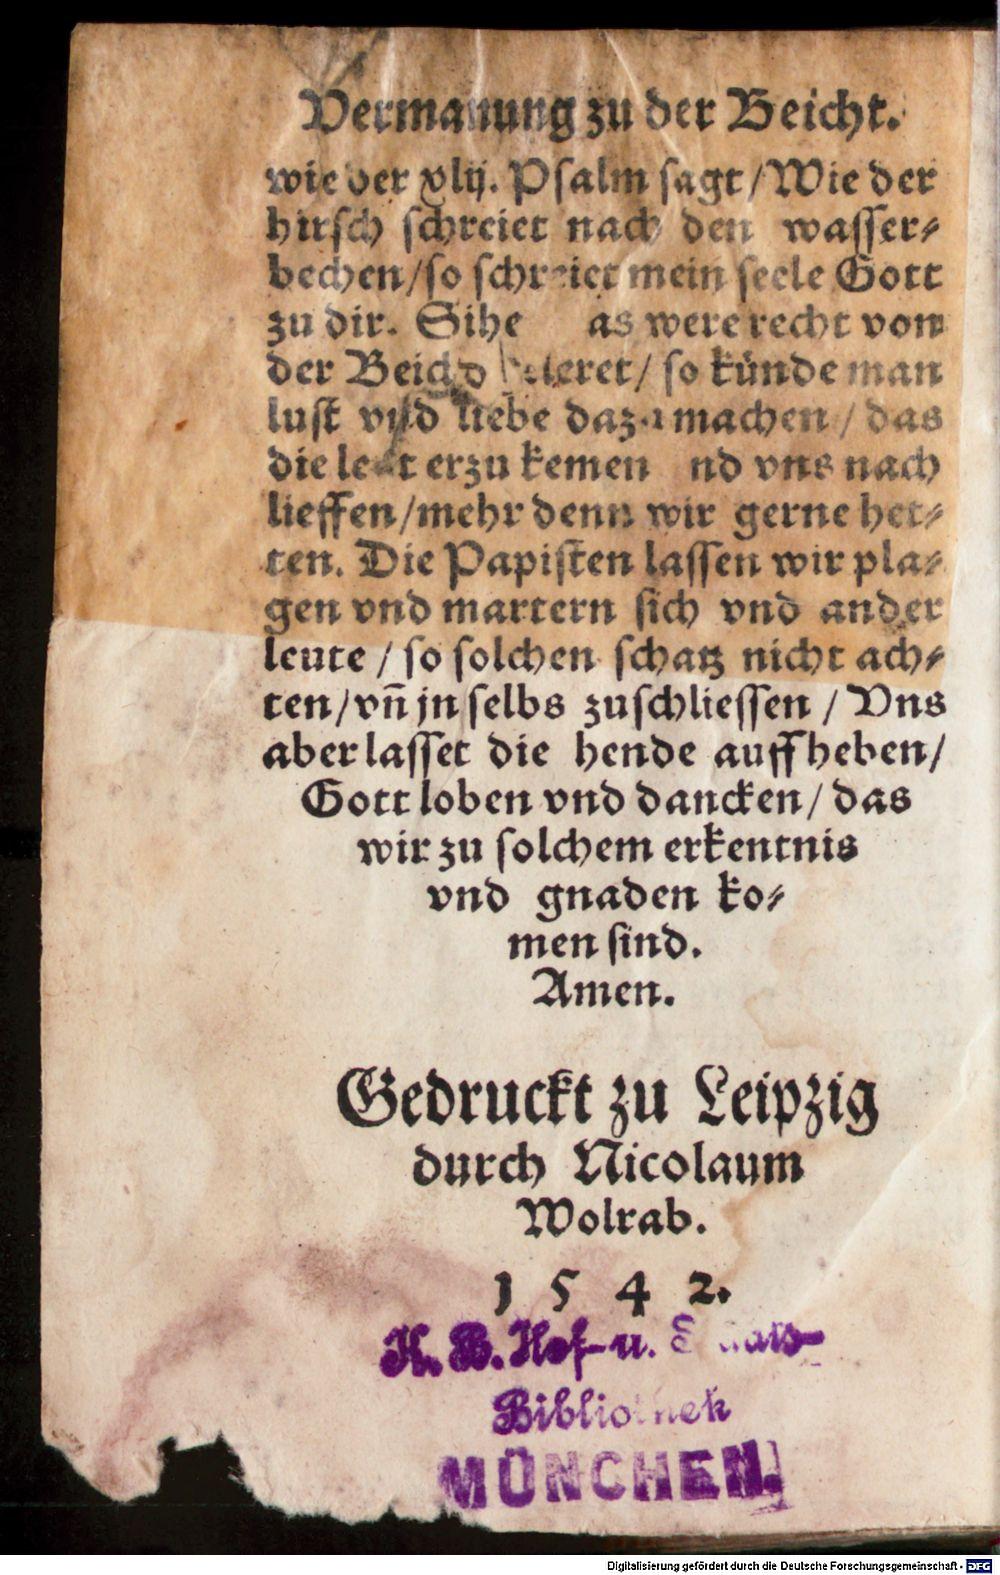 Vermanung zu der Beicht.
wie der xlij. Psalm sagt / Wie der
hirsch schreiet nach den wasser⸗
bechen / so schreiet mein seele Gott
zu dir. Sihe as were recht von
der Beicht geleret / so künde man
lust vnd liebe dazu machen / das
die leut erzu kemen nd vns nach
lieffen / mehr denn wir gerne het⸗
ten. Die Papisten lassen wir pla⸗
gen vnd martern sich vnd ander
leute / so solchen schatz nicht ach⸗
ten / vn̄ jn selbs zuschliessen / Vns
aber lasset die hende auffheben /
Gott loben vnd dancken / das
wir zu solchem erkentnis
vnd gnaden ko⸗
men sind.
Amen.
Gedruckt zu Leipzig
durch Nicolaum
Wolrab.
1 5 4 2.
K. B. Hof- u. Staats-
Bibliothek
MÜNCHEN.
Digitalisierung gefördert durch die Deutsche Forschungsgemeinschaft - DFG